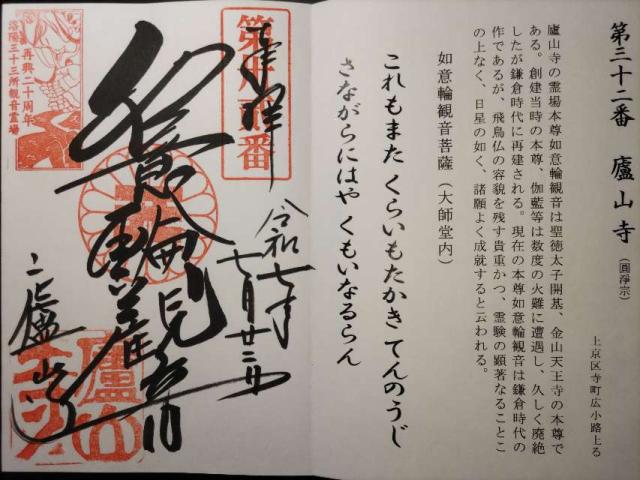 第三十二番 廬山寺（圓淨宗）
上京区寺町広小路上る
廬山寺の霊場本尊如意輪観音は聖徳太子開基、金山天王寺の本尊で
ある。創建当時の本尊、伽藍等は数度の火難に遭遇し、久しく廃絶
したが鎌倉時代に再建される。現在の本尊如意輪観音は鎌倉時代の
作であるが、飛鳥仏の容貌を残す貴重かつ、霊験の顕著なることこ
の上なく、日星の如く、諸願よく成就すると云われる。
如意輪観音菩薩（大師堂内）
これもまた くらいもたかき てんのうじ
さながらにはや くもいなるらん
奉拝
令和七年
七月廿二日
如意輪観音
廬山寺
再興二十周年
洛陽三十三所観音霊場
廬山